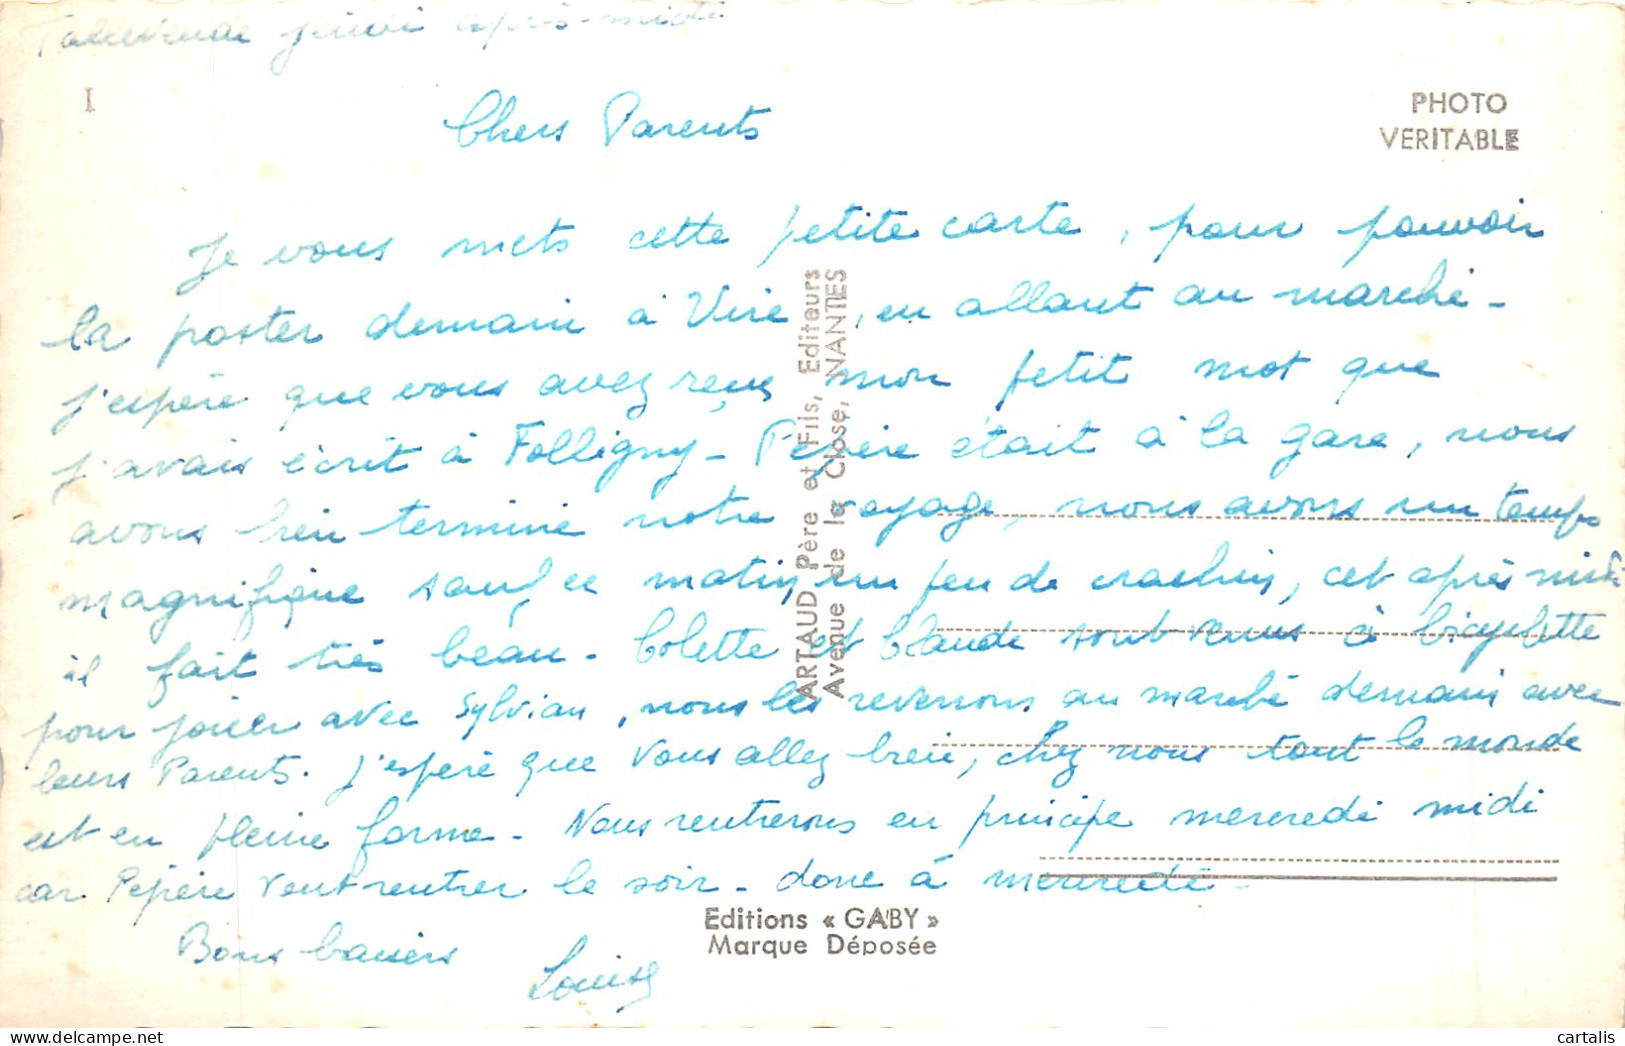 Tallevende jeudi après-midi
I
PHOTO
VERITABLE
Chers Parents
Je vous mets cette petite carte, pour pouvoir
la poster demain à Vire, en allant au marché-
j'espère que vous avez reçu mon petit mot que
j'avais écrit à Folligny- Pépère était à la gare, nous
avons bien terminé notre voyage, nous avons un temps
magnifique sauf ce matin un peu de crachin, cet après midi
il fait très beau- Colette et Claude sont venus à bicyclette
pour jouer avec Sylvian, nous les reverrons au marché demain avec
leurs Parents. J'espère que vous allez bien, chez nous tout le monde
est en pleine forme- Nous rentrerons en principe mercredi midi
car Pépère veut rentrer le soir- donc à mercredi-
Bons baisers
Louise
ARTAUD Père et Fils, Editeurs
Avenue de la Close, NANTES
Editions « GABY »
Marque Déposée
cartalis